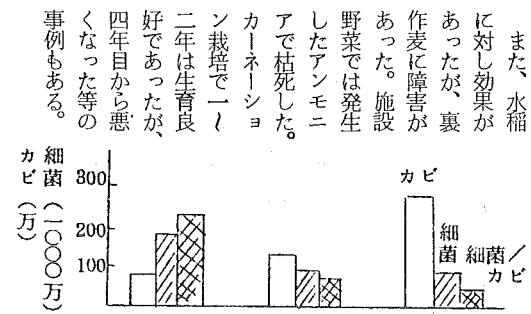 また、水稲
に対し効果が
あったが、裏
作麦に障害が
あった。施設
野菜では発生
したアンモニ
アで枯死した。
カーネーショ
ン栽培で一〜
二年は生育良
好であったが、
四年目から悪
くなった等の
事例もある。
細菌（一〇〇〇万）
カビ（万）
300
200
100
カビ
細菌
細菌／カビ